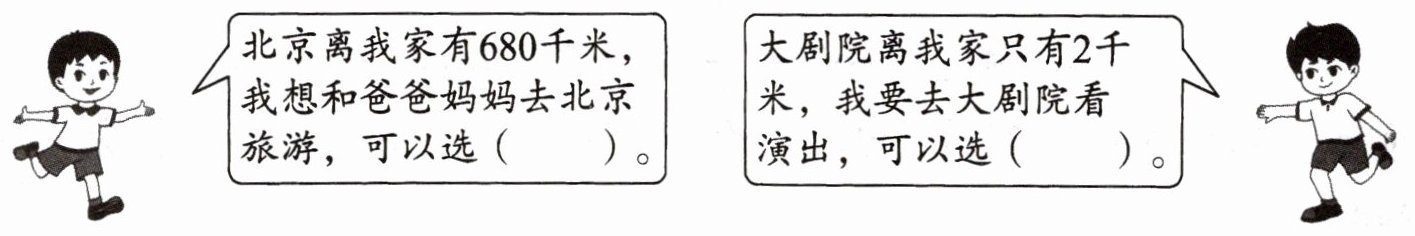 北京离我家有680千米，
我想和爸爸妈妈去北京
旅游，可以选（　　）。
大剧院离我家只有2千
米，我要去大剧院看
演出，可以选（　　）。